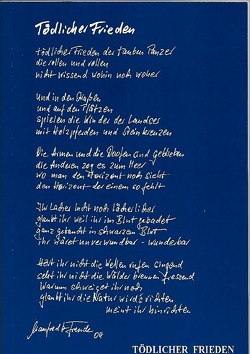 Tödlicher Frieden
tödlicher Frieden der tauben Panzer
die rollen und rollen
nicht wissend wohin noch woher
und in den Straßen
und auf den Plätzen
spielen die Kinder des Landes
mit Holzpferden und Steinkreuzen
Die Armen und die Doofen sind geblieben
die Anderen zog es zum Meer
wo man den Horizont noch sieht
den Horizont der einem so fehlt
Ihr Lacher lacht noch lächerlicher
glaubt ihr weil ihr im Blut gebadet
ganz getaucht in schwarzen Blut
ihr wäret unverwundbar - wunderbar
Hört ihr nicht die Wellen rufen singend
seht ihr nicht die Wälder brennen fressend
Warum schweiget ihr noch
glaubt ihr die Natur wird's richten
meint ihr hinrichten
04
TÖDLICHER FRIEDEN